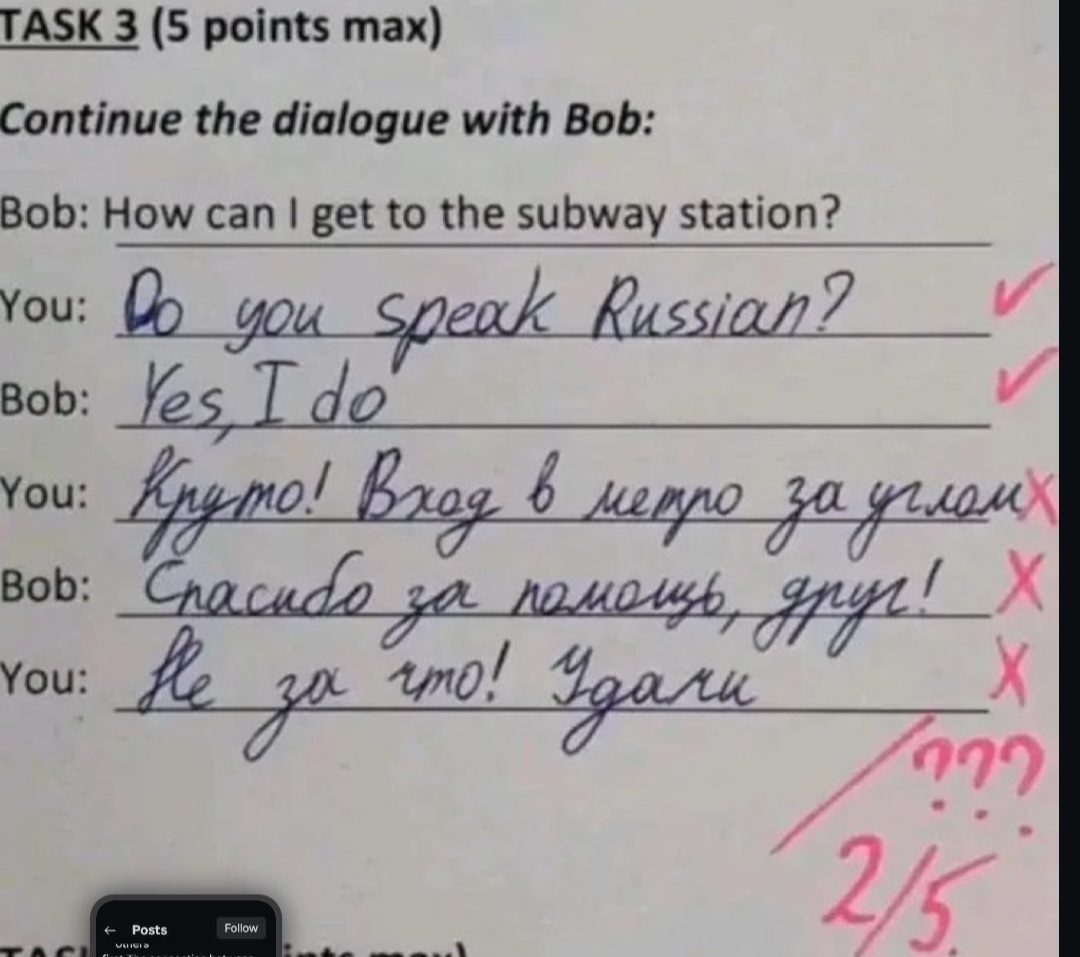 TASK 3 (5 points max)
Continue the dialogue with Bob:
Bob: How can I get to the subway station?
You: Do you speak Russian?
Bob: Yes, I do
You: Круто! Вход в метро за углом
Bob: Спасибо за помощь, друг!
You: Не за что! Удачи
???
2/5
← Posts Follow